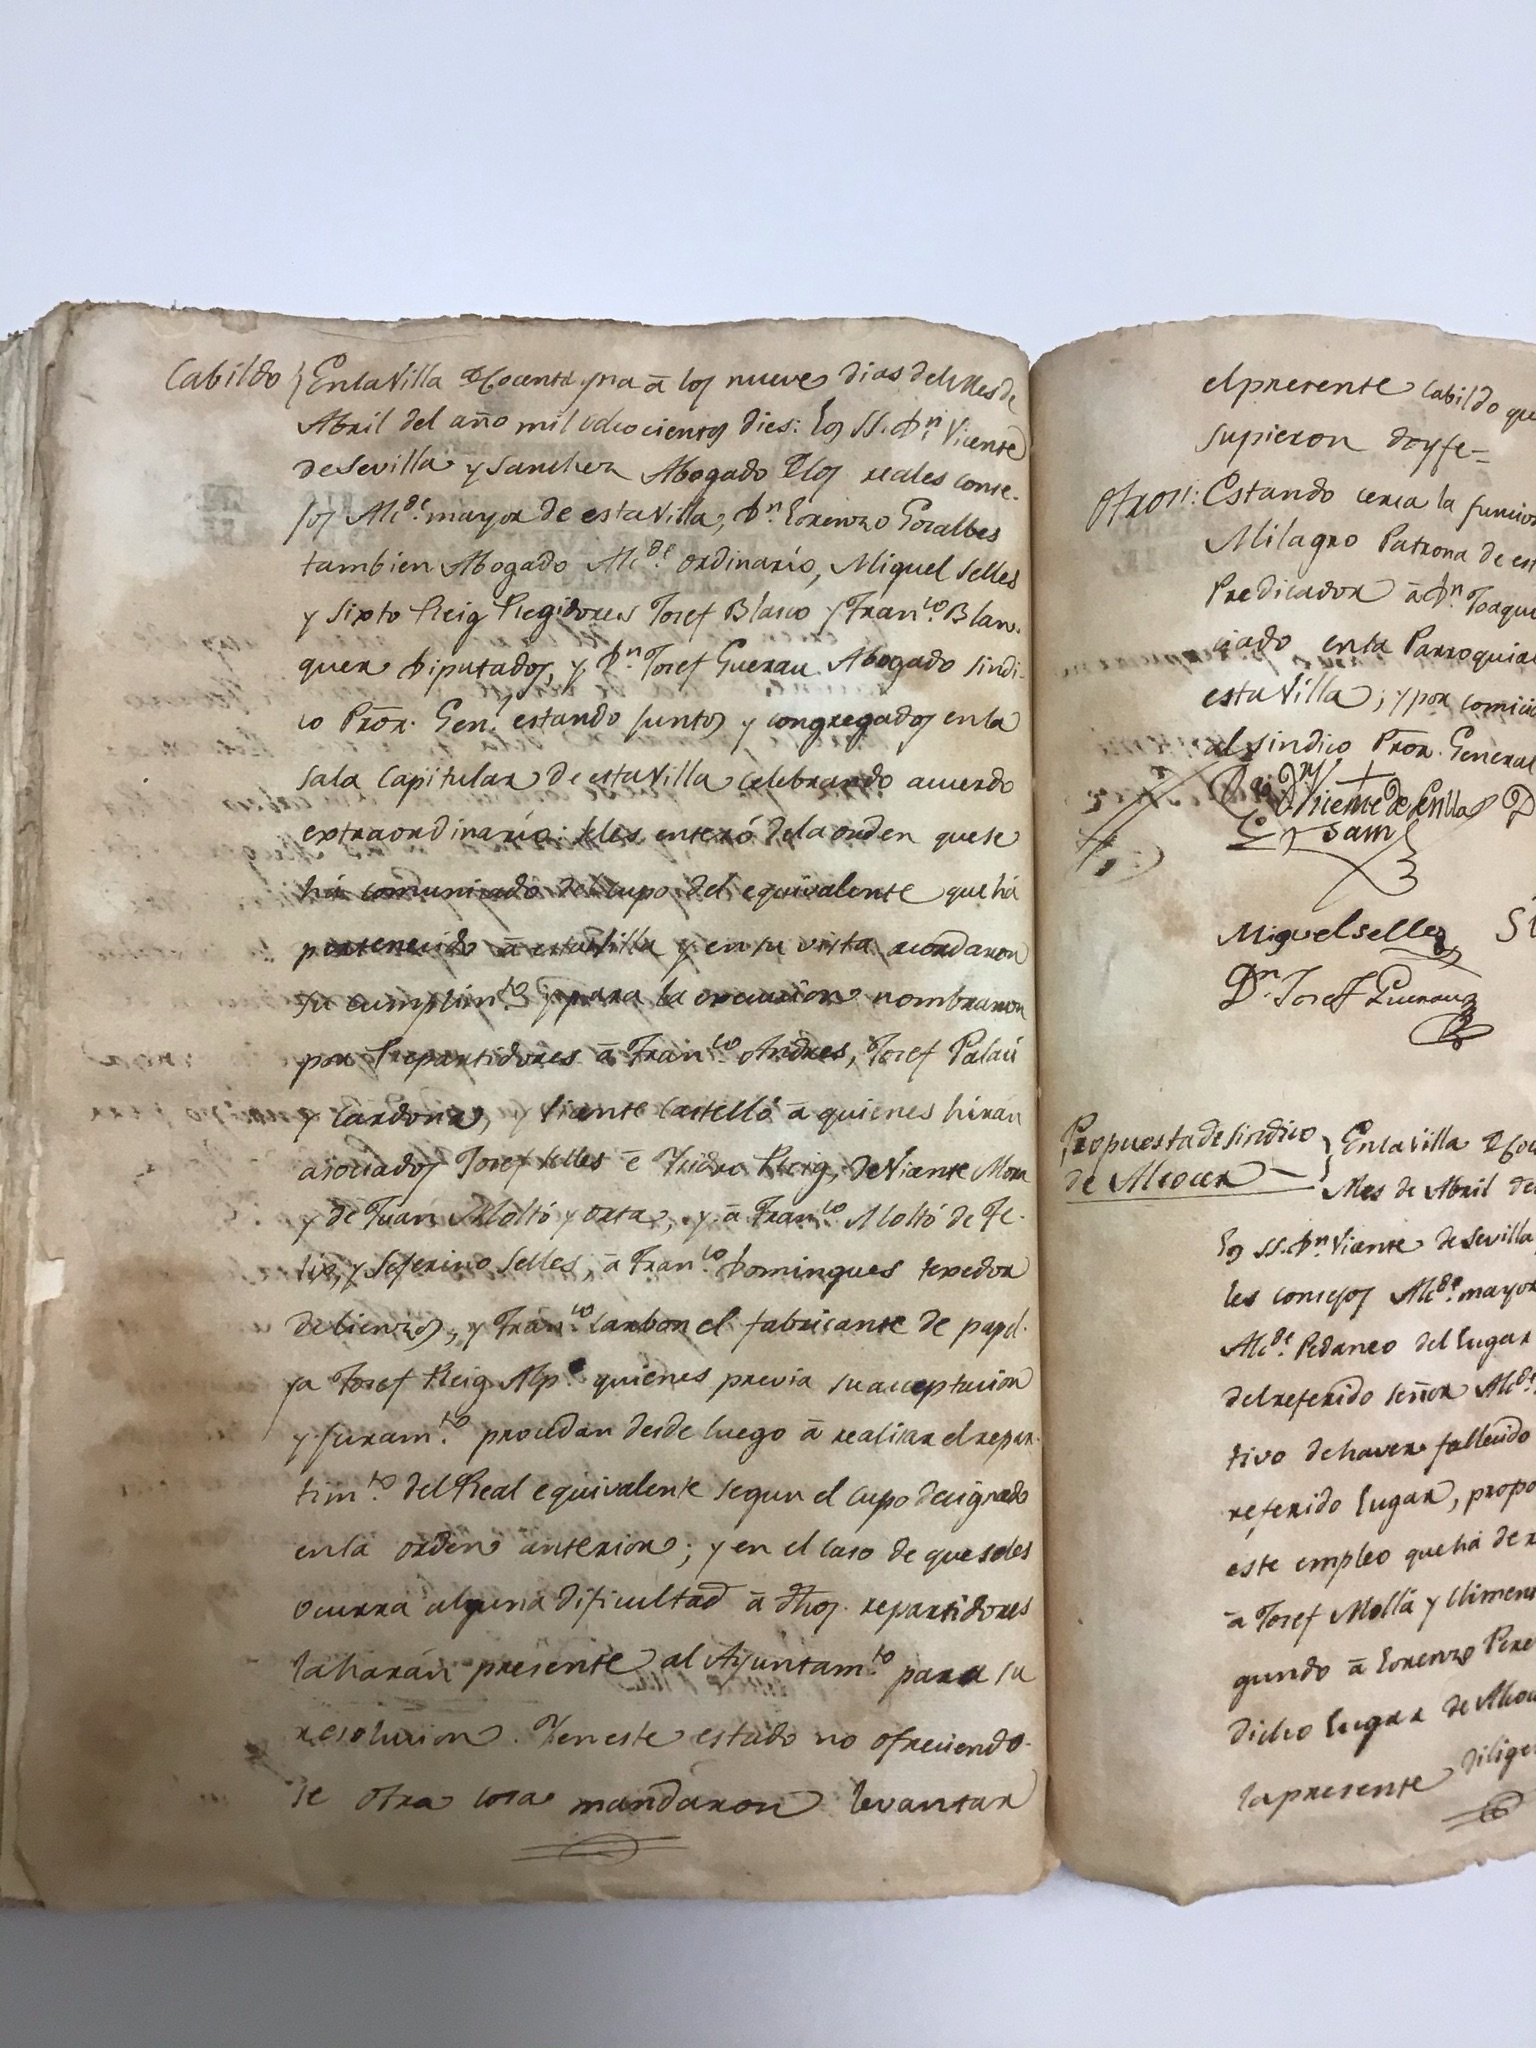 Cabildo } En la Villa de Cocentayna â los nueve dias del Mes de
Abril del año mil ochocientos dies: Los SS. Dn. Vicente
de Sevilla y Sanchez Abogado de los reales conse-
jos Alcde. mayor de esta Villa, Dn. Lorenzo Goralbes
tambien Abogado Alcde. ordinario, Miguel Selles
y Sixto Reig Regidores Josef Blasco y Franco. Blan-
quer Diputados, y Dn. Josef Guerau Abogado Sindi-
co Pror. Genl. estando juntos y congregados en la
Sala Capitular de esta Villa celebrando acuerdo
extraordinario: se les enteró de la orden que se
há comunicado del cupo del equivalente que há
pertenecido â esta Villa y en su vista acordaron
su cumplimto. y para la execucion nombraron
por Repartidores â Franco. Andres, Josef Palaú
y Cardona, y Visente Castelló â quienes hirán
asociados Josef Selles e Ysidro Reig, de Visente Mora
y de Juan Moltó y Orta, y â Franco. Moltó de Fe-
lix, y Seferino Selles, â Franco. Domingues texedor
de lienzos, y Franco. Carbonel fabricante de papel.
ya Josef Reig Alp.e quienes previa su acceptacion
y juramto. procedan desde luego â realizar el repar-
timto. del Real equivalente segun el cupo decignado
en la orden anterior; y en el caso de que se les
ocurra alguna dificultad â dhos. repartidores
la harán presente al Ayuntamto. para su
resolucion. Y en este estado no ofreciendo-
se otra cosa mandaron levantar
el presente Cabildo que
supieron doy fe =
Otrosi: Estando cerca la funcion
Milagro Patrona de es
Predicador â Dn. Joaqu
ciado en la Parroquial
esta Villa; y por comici
al Sindico Pror. General
Dn. Vicente de Sevilla D
y San
Miguel Selles Si
Dn. Josef Guerau
Propuesta de Sindico } En la Villa de Coc
de Alcocer Mes de Abril del
los SS. Dn. Visente de Sevilla
les consejos Alcde. mayor
Alcde. Pedaneo del Lugar
del referido señor Alcde.
tivo de haver fallecido
referido Lugar, propo
este empleo que há de r
â Josef Mollá y Climent
gundo â Lorenzo Pere
dicho Lugar de Alco
la presente dilige